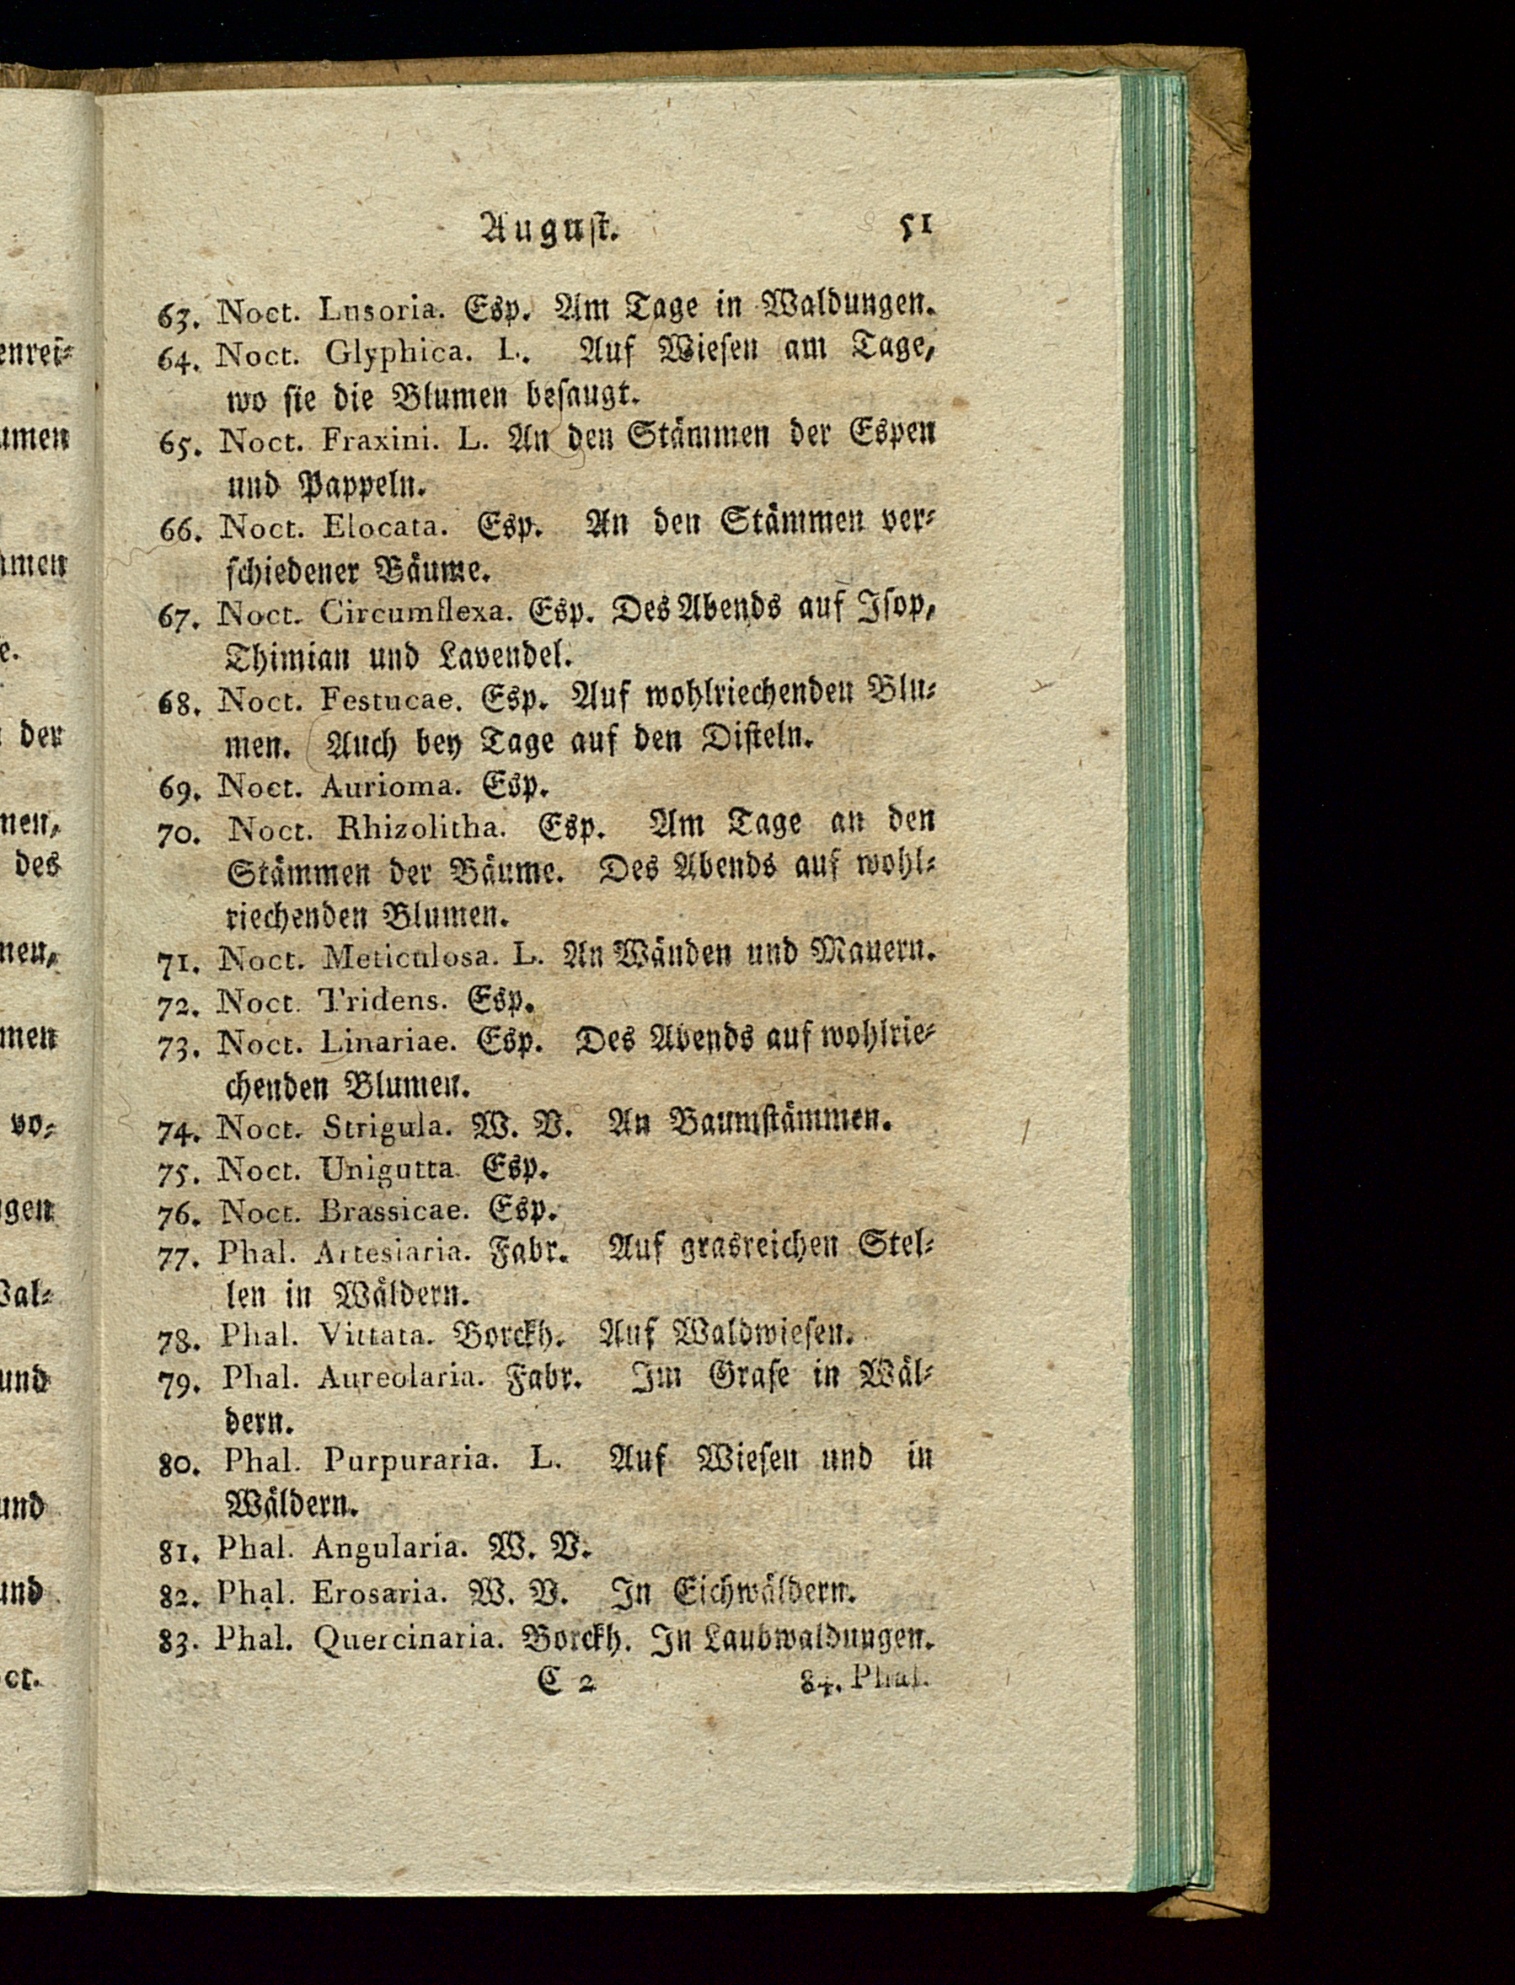 August. 51
63. Noct. Lusoria. Esp. Am Tage in Waldungen.
64. Noct. Glyphica. L. Auf Wiesen am Tage,
wo sie die Blumen besaugt.
65. Noct. Fraxini. L. An den Stämmen der Espen
und Pappeln.
66. Noct. Elocata. Esp. An den Stämmen ver-
schiedener Bäume.
67. Noct. Circumflexa. Esp. Des Abends auf Isop,
Thimian und Lavendel.
68. Noct. Festucae. Esp. Auf wohlriechenden Blu-
men. Auch bey Tage auf den Disteln.
69. Noct. Aurioma. Esp.
70. Noct. Rhizolitha. Esp. Am Tage an den
Stämmen der Bäume. Des Abends auf wohl-
riechenden Blumen.
71. Noct. Meticulosa. L. An Wänden und Mauern.
72. Noct. Tridens. Esp.
73. Noct. Linariae. Esp. Des Abends auf wohlrie-
chenden Blumen.
74. Noct. Strigula. W. V. An Baumstämmen.
75. Noct. Unigutta. Esp.
76. Noct. Brassicae. Esp.
77. Phal. Artesiaria. Fabr. Auf grasreichen Stel-
len in Wäldern.
78. Phal. Vittata. Borckh. Auf Waldwiesen.
79. Phal. Aureolaria. Fabr. Im Grase in Wäl-
dern.
80. Phal. Purpuraria. L. Auf Wiesen und in
Wäldern.
81. Phal. Angularia. W. V.
82. Phal. Erosaria. W. V. In Eichwäldern.
83. Phal. Quercinaria. Borckh. In Laubwaldungen.
C 2 84. Phal.